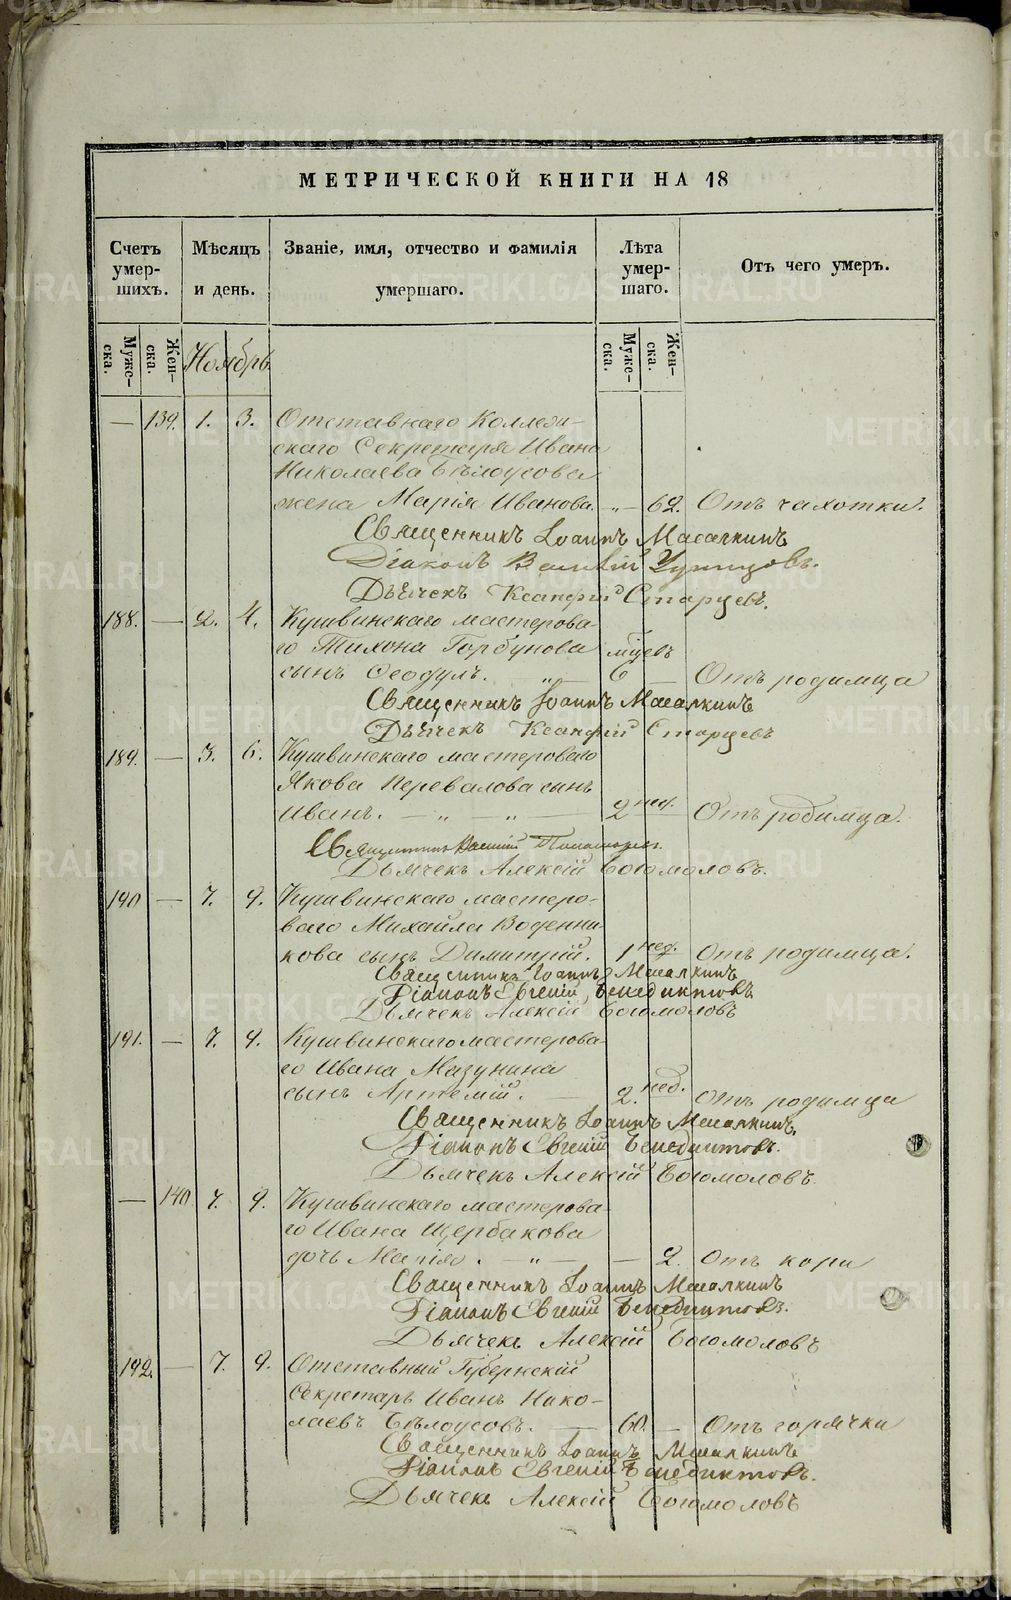 МЕТРИЧЕСКОЙ КНИГИ НА 18
Счетъ умер-шихъ.
Мѣсяцъ и день.
Званіе, имя, отчество и фамилія умершаго.
Лѣта умер-шаго.
Отъ чего умеръ.
Муже-ска.
Жен-ска.
Муже-ска.
Жен-ска.
Ноябрь
— 139. 1. 3. Отставнаго Коллеж-
скаго Секретаря Ивана
Николаева Бѣлоусова
жена Марія Иванова. „ — 62. Отъ чахотки.
Священникъ Іоаннъ Масалкинъ
Діаконъ Василій
Дьячекъ Ксанфій Старцевъ.
188. — 2. 4. Кушвинскаго мастерова-
го Тихона Горбунова мѣцевъ
сынъ Ѳеодулъ. „ — 6 — Отъ родимца
Священникъ Іоаннъ Масалкинъ
Дьячекъ Ксанфій Старцевъ
189. — 3. 6. Кушвинскаго мастероваго
Якова Перевалова сынъ
Иванъ. — „ — „ — 2 нед. — Отъ родимца.
Священникъ Василій Пономаревъ.
Дьячекъ Алексій Богомоловъ.
190 — 7. 9. Кушвинскаго мастеро-
ваго Михаила Воденни-
кова сынъ Димитрій. 1 нед. Отъ родимца.
Священникъ Іоаннъ Масалкинъ
Діаконъ Евгеній Бенедиктовъ
Дьячекъ Алексій Богомоловъ
191. — 7. 9. Кушвинскаго мастерова-
го Ивана Мазунина
сынъ Артемій. — 2. нед. Отъ родимца
Священникъ Іоаннъ Масалкинъ.
Діаконъ Евгеній Бенедиктовъ.
Дьячекъ Алексій Богомоловъ.
— 140 7. 9. Кушвинскаго мастерова-
го Ивана Щербакова
дочь Марія. — „ — — 2. Отъ кори
Священникъ Іоаннъ Масалкинъ
Діаконъ Евгеній Бенедиктовъ.
Дьячекъ Алексій Богомоловъ
192. — 7. 9. Отставный Губернскій
Секретарь Иванъ Нико-
лаевъ Бѣлоусовъ. — 60. — Отъ горячки
Священникъ Іоаннъ Масалкинъ
Діаконъ Евгеній Бенедиктовъ.
Дьячекъ Алексій Богомоловъ
METRIKI.GASO-URAL.RU